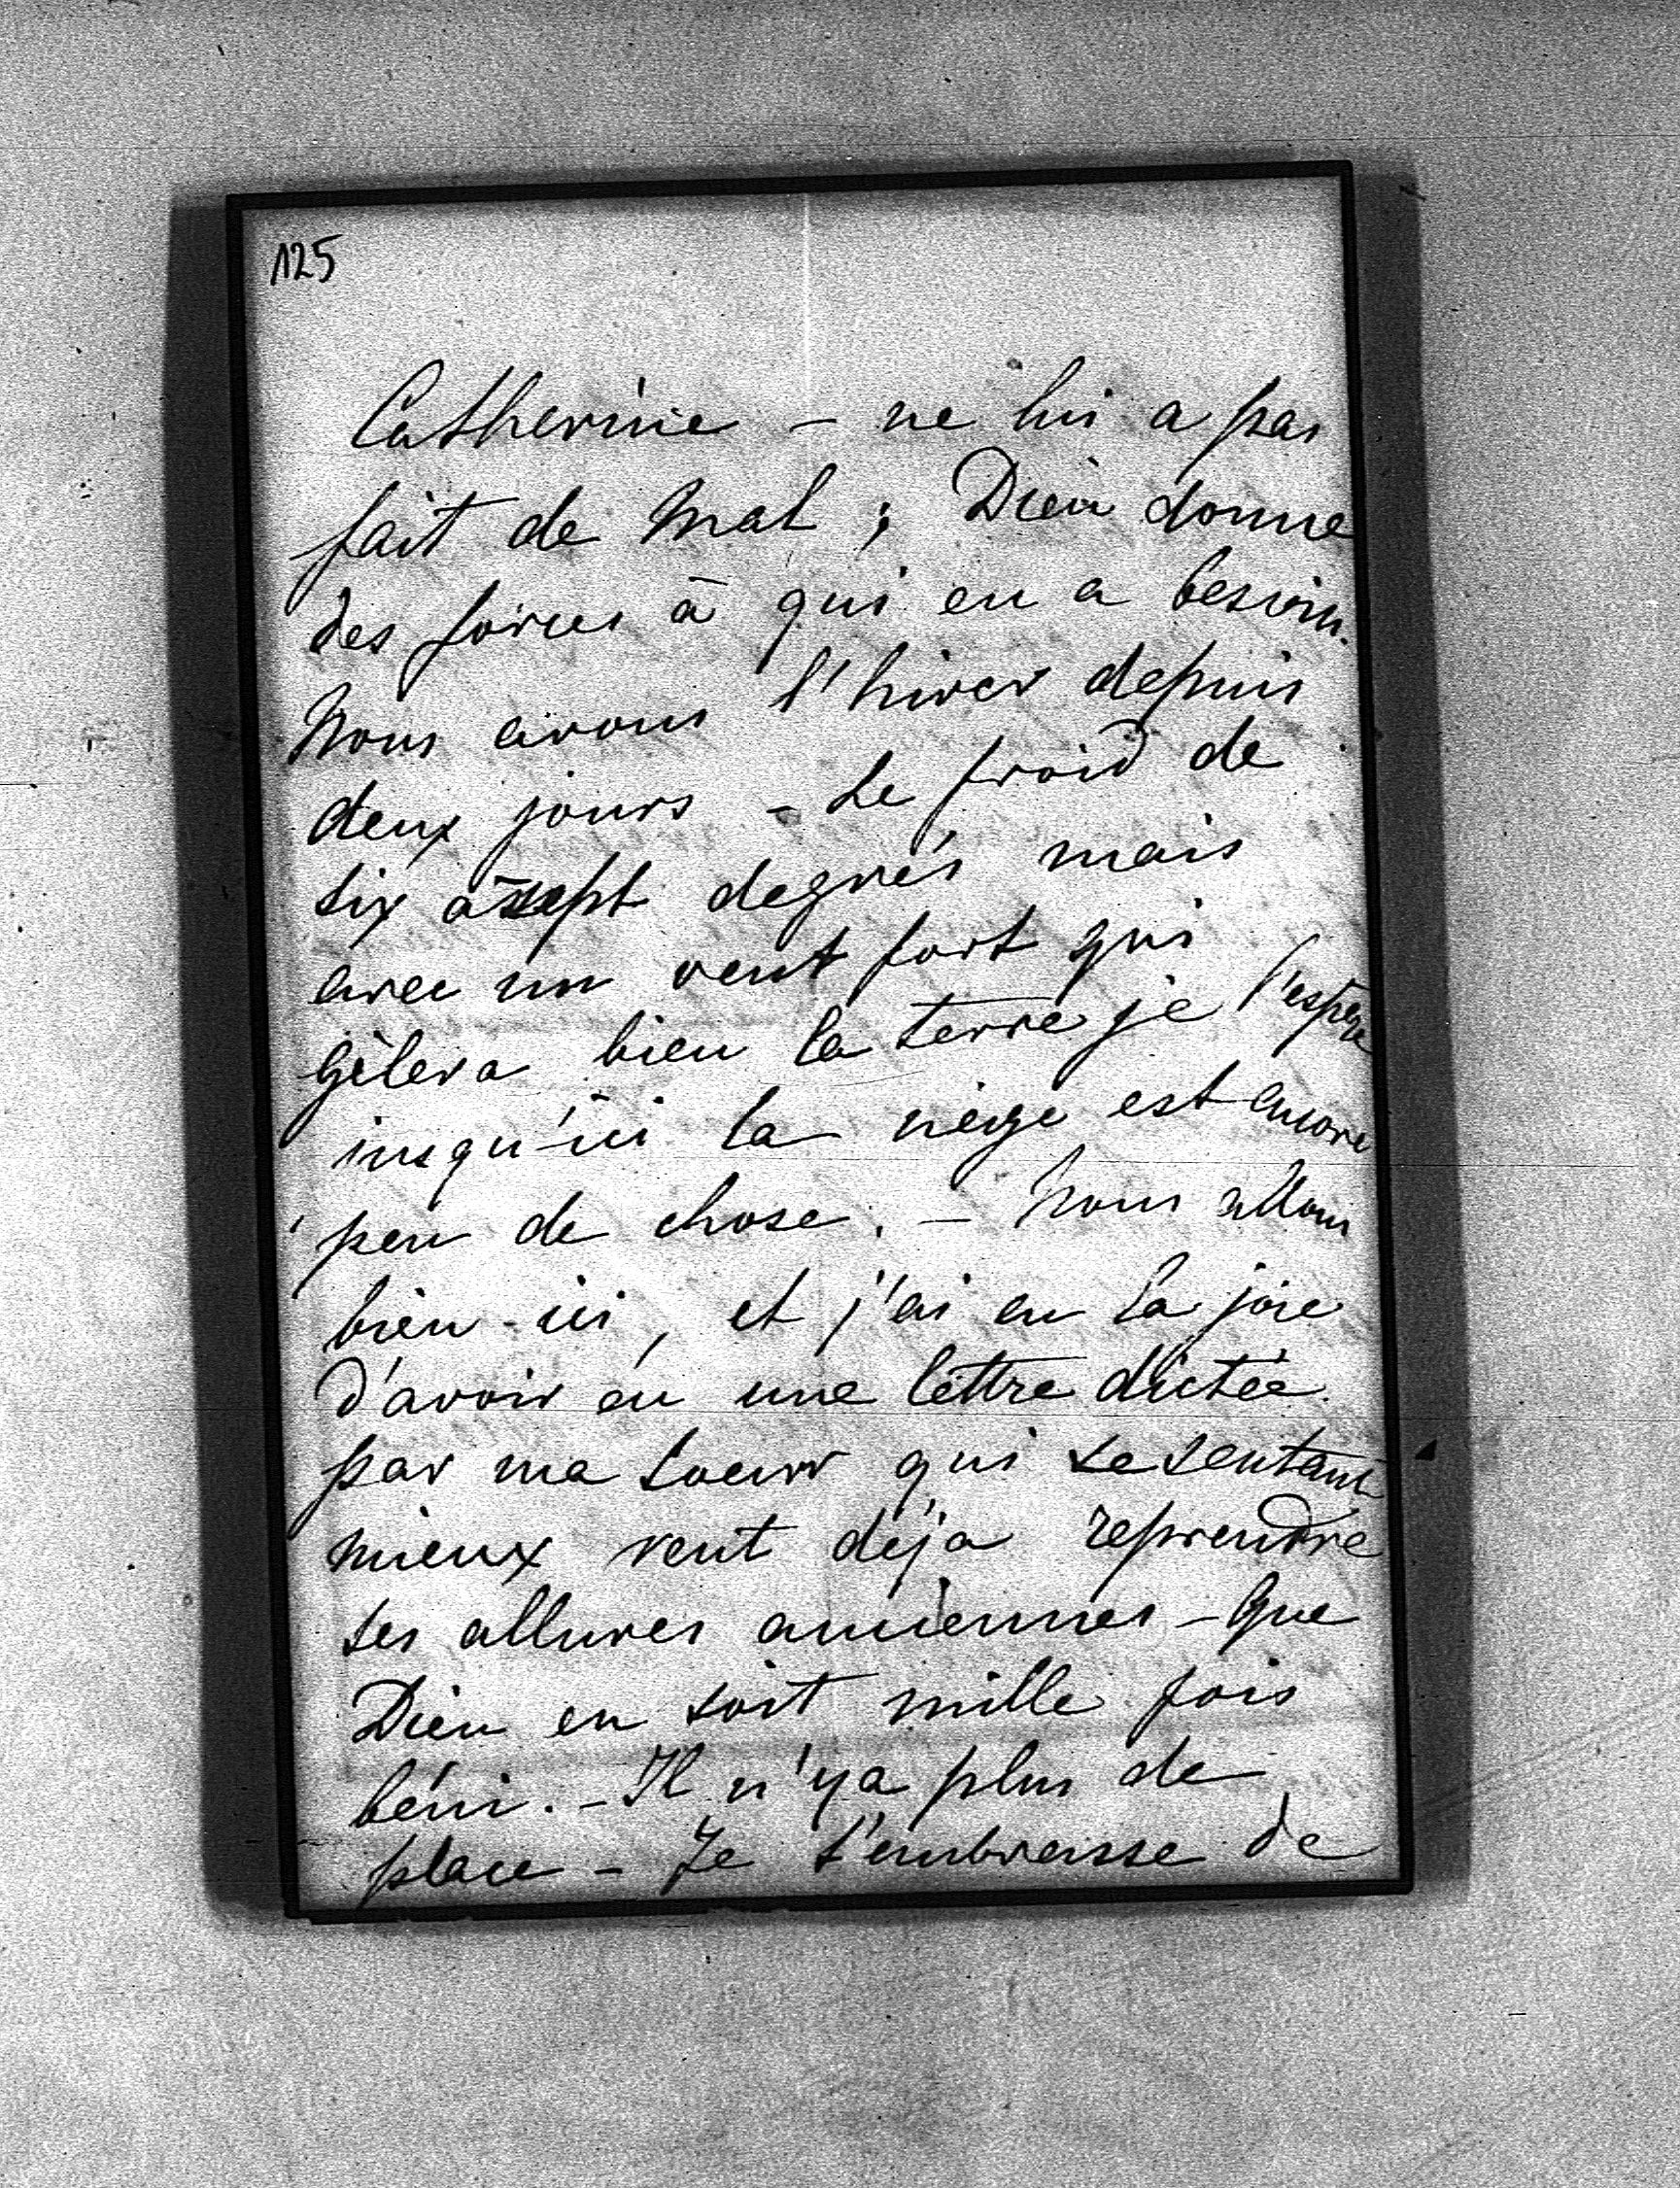 125
Catherine – ne lui a pas
fait de mal ; Dieu donne
des forces à qui en a besoin.
Nous avons l'hiver depuis
deux jours – Le froid de
six à sept degrés mais
avec un vent fort qui
gèlera bien la terre je l'espère
jusqu'ici la neige est encore
peu de chose. – Nous allons
bien ici, et j'ai eu la joie
d'avoir eu une lettre dictée
par ma soeur qui se sentant
mieux veut déja reprendre
ses allures anciennes – Que
Dieu en soit mille fois
béni. – Il n'y a plus de
place – Je t'embrasse de